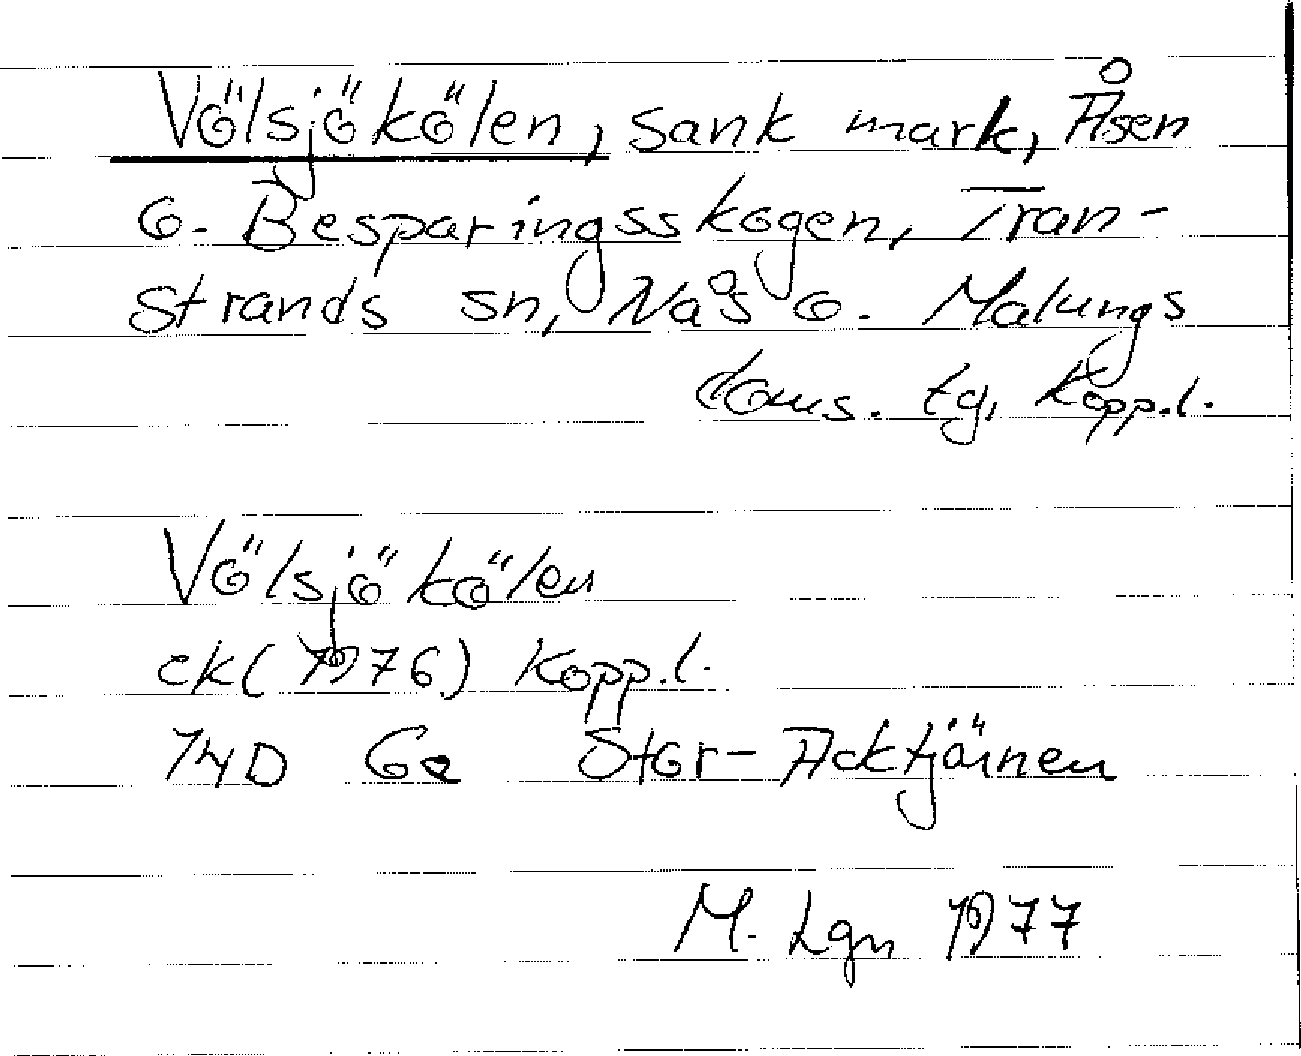 Völsjökölen, sank mark, Åsen
o. Besparingsskogen, Tran-
strands sn, Nås o. Malungs
doms. tg, Kopp.l.
Völsjökölen
ek (1976) Kopp.l.
14D 6e Stor-Acktjärnen
M. Lgn 1977